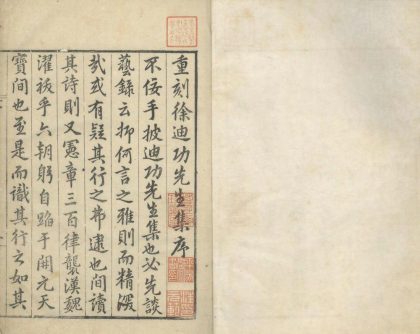 重刻徐迪功先生集序
不佞手披迪功先生集也必先談
藝錄云抑何言之雅則而精深
哉或有疑其行之弗逮也間讀
其詩則又憲章三百律襲漢魏
濯祓乎六朝躬自蹈于開元天
寶間也至是而識其行云如其